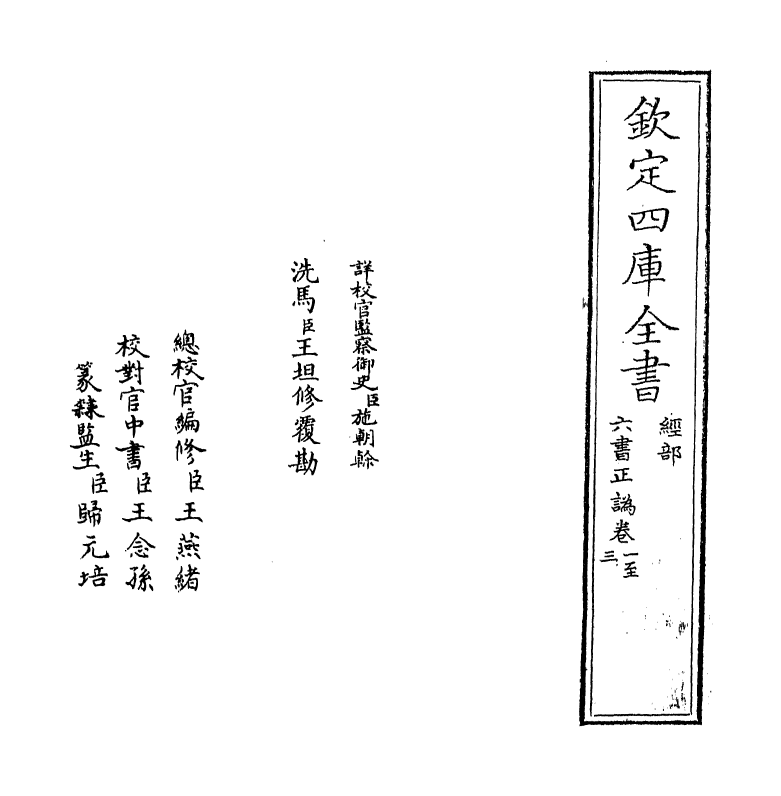 欽定四庫全書
經部
六書正譌卷一至三
詳校官監察御史臣施朝幹
洗馬臣王坦修覆勘
總校官編修臣王燕緒
校對官中書臣王念孫
篆隸監生臣歸元培